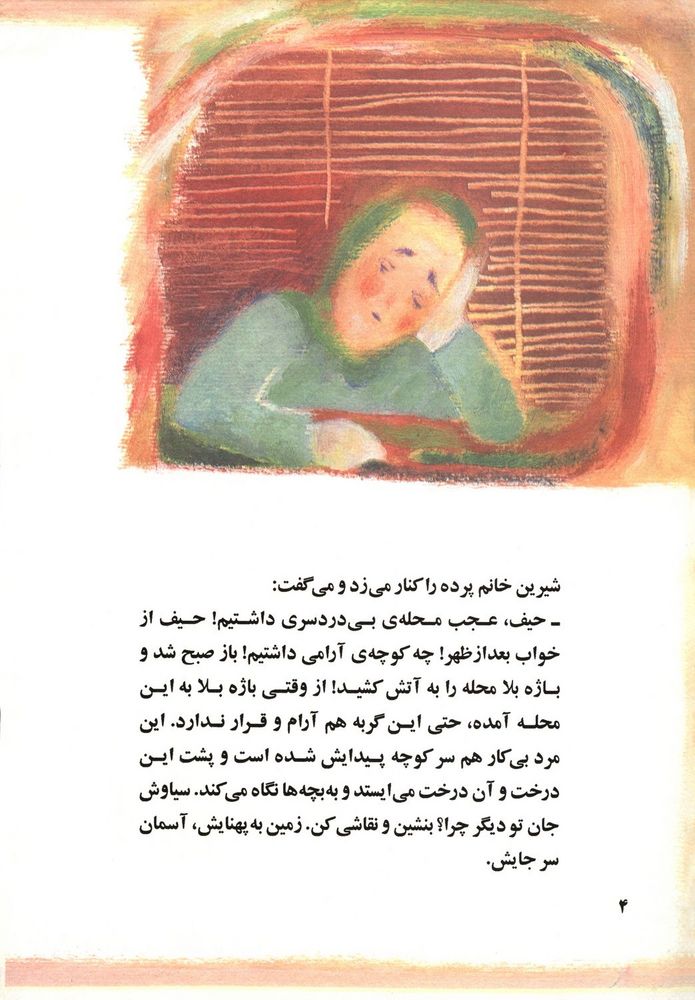 شیرین خانم پرده را کنار می‌زد و می‌گفت:
ـ حیف، عجب محله‌ی بی‌دردسری داشتیم! حیف از
خواب بعدازظهر! چه کوچه‌ی آرامی داشتیم! باز صبح شد و
باژه بلا محله را به آتش کشید! از وقتی باژه بلا به این
محله آمده، حتی این گربه هم آرام و قرار ندارد. این
مرد بی‌کار هم سر کوچه پیدایش شده است و پشت این
درخت و آن درخت می‌ایستد و به‌بچه‌ها نگاه می‌کند. سیاوش
جان تو دیگر چرا؟ بنشین و نقاشی کن. زمین به پهنایش، آسمان
سر جایش.
۴